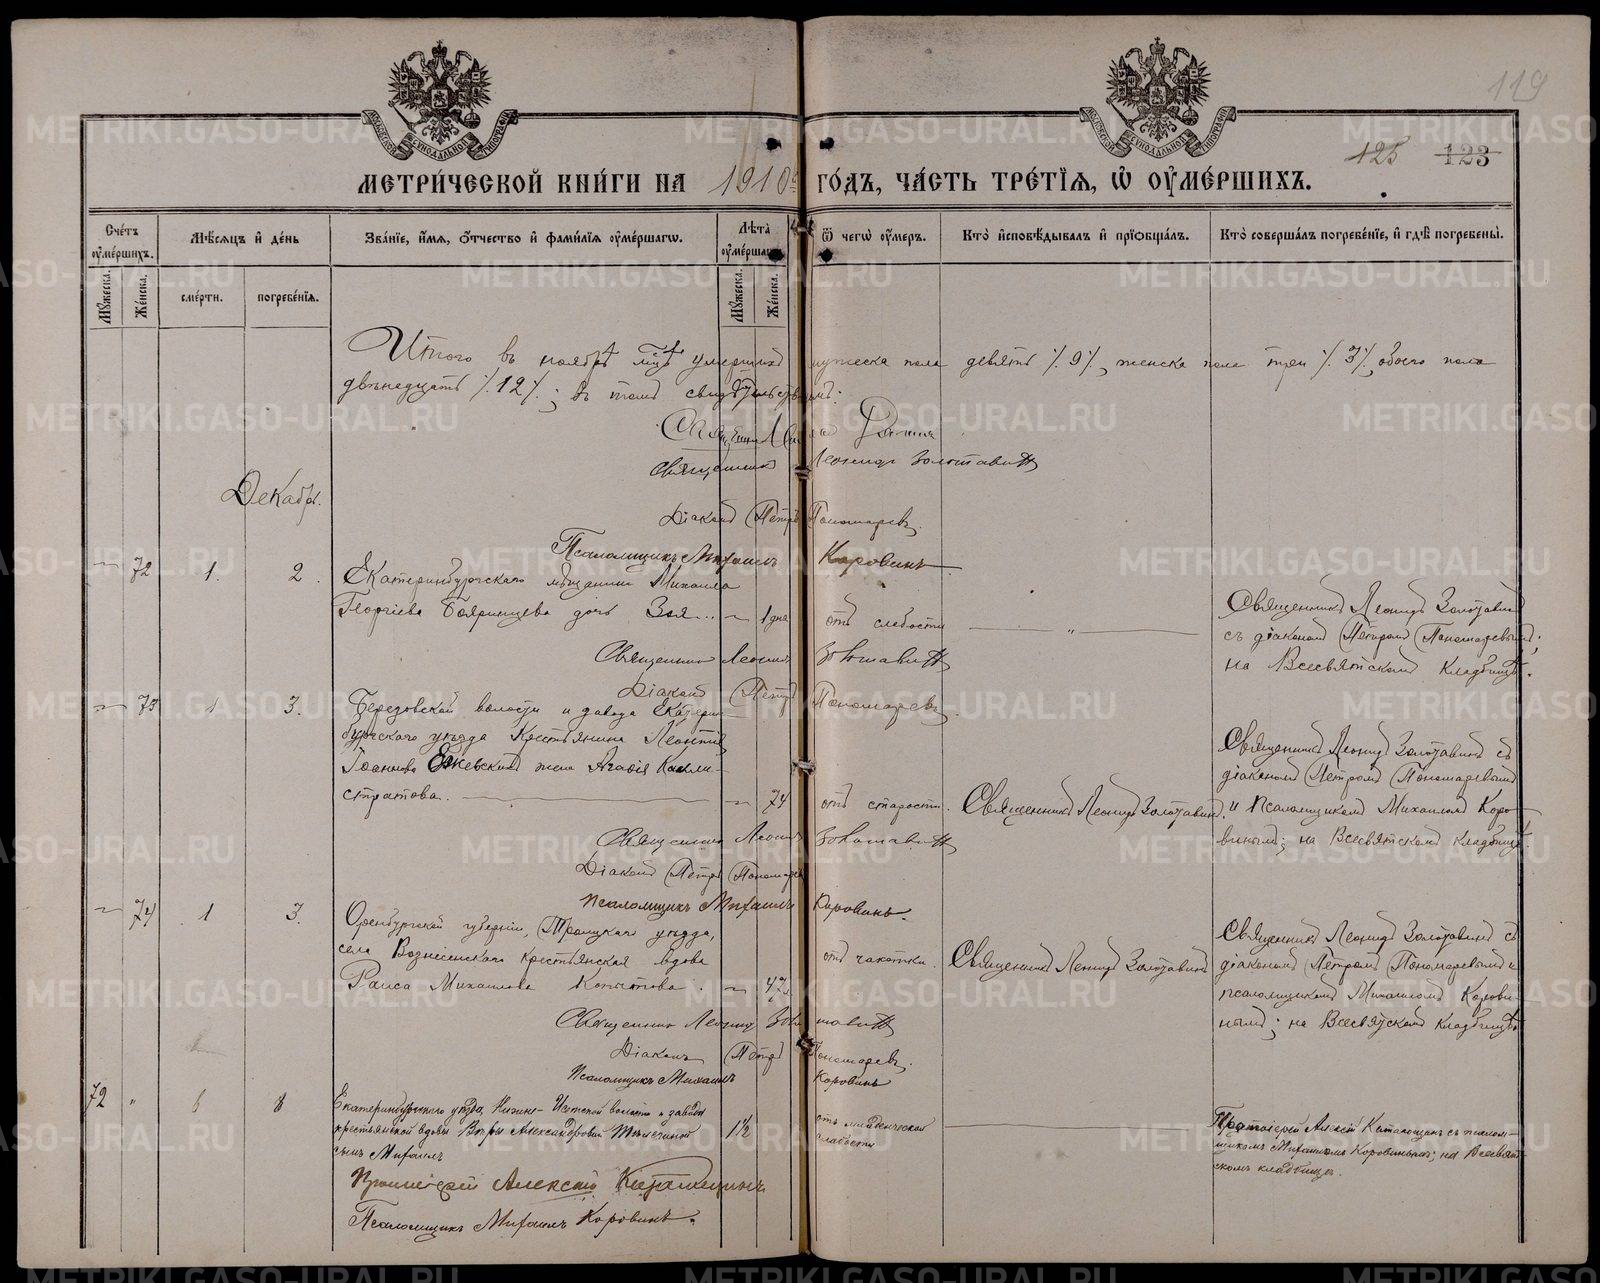 119
125 123
МЕТРИ́ЧЕСКОЙ КНИ́ГИ НА 1910й ГО́ДЪ, ЧА́СТЬ ТРЕ́ТЇѦ, Ѿ ОУМЕ́РШИХЪ.
Сче́тъ оумершихъ.
Мѣ́сяцъ и де́нь
Зва́нїе, и́мѧ, о́тчество и фами́лїѧ оуме́ршагѡ.
Лѣта̀ оуме́ршагѡ
Ѿ чегѡ̀ оу́меръ.
Кто̀ исповѣ́дывалъ и прїѡбща́лъ.
Кто̀ соверша́лъ погребе́нїе, и гдѣ̀ погребены̀.
Мꙋ́жеска.
Же́нска.
сме́рти.
погребе́нїѧ.
Мꙋ́жеска.
Же́нска.
Итого въ ноябрѣ мцѣ умершихъ мужеска пола девять /9/, женска пола три /3/, обоего пола
двѣнадцать /12/; въ томъ свидѣтельствуемъ:
Священникъ
Священникъ Леонидъ Золотавинъ
Діаконъ Петръ Пономаревъ.
Псаломщикъ Михаилъ Коровинъ
Декабрь.
72 1. 2.
Екатеринбургскаго мѣщанина Михаила
Георгіева Бояринцева дочь Зоя
1 дня
отъ слабости
Священникъ Леонидъ Золотавинъ
съ діакономъ Петромъ Пономаревымъ;
на Всесвятскомъ кладбищѣ.
Священникъ Леонидъ Золотавинъ
Діаконъ Петръ Пономаревъ.
73 1 3.
Березовской волости и завода Екатерин-
бургскаго уѣзда крестьянина Леонтія
Іоаннова жена Агафія Калли-
стратова.
74
отъ старости.
Священникъ Леонидъ Золотавинъ.
Священникъ Леонидъ Золотавинъ съ
діакономъ Петромъ Пономаревымъ
и псаломщикомъ Михаиломъ Коро-
винымъ; на Всесвятскомъ кладбищѣ.
Священникъ Леонидъ Золотавинъ
Діаконъ Петръ Пономаревъ
Псаломщикъ Михаилъ Коровинъ.
74 1 3.
Оренбургской губерніи, Троицкаго уѣзда,
села Вознесенскаго крестьянская вдова
Раиса Михаилова Копытова.
42
отъ чахотки.
Священникъ Леонидъ Золотавинъ
Священникъ Леонидъ Золотавинъ съ
діакономъ Петромъ Пономаревымъ и
псаломщикомъ Михаиломъ Корови-
нымъ; на Всесвятскомъ кладбищѣ
Священникъ Леонидъ Золотавинъ
Діаконъ Петръ Пономаревъ.
Псаломщикъ Михаилъ Коровинъ
72 " 6 8
Екатеринбургскаго уѣзда, Нижне-Исетской волости и завода
крестьянской вдовы Вѣры Александровой
сынъ Михаилъ
1½
отъ младенческой
слабости
Протоіерей Алексій Катагощинъ съ псалом-
щикомъ Михаиломъ Коровинымъ; на Всесвят-
скомъ кладбищѣ.
Протоіерей Алексій Катагощинъ
Псаломщикъ Михаилъ Коровинъ.
METRIKI.GASO-URAL.RU